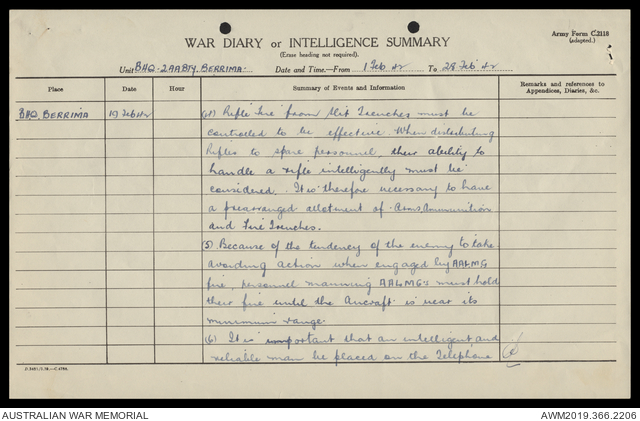 Army Form C.2118
(adapted.)
WAR DIARY or INTELLIGENCE SUMMARY
(Erase heading not required).
Unit BHQ. 2AABTY. BERRIMA. Date and Time.—From 1 Feb 42 To 28 Feb 42
Place Date Hour Summary of Events and Information Remarks and references to Appendices, Diaries, &c.
BHQ BERRIMA 19 Feb 42 (4) Rifle fire from Slit Trenches must be
controlled to be effective. When distributing
Rifles to spare personnel, their ability to
handle a rifle intelligently must be
considered. It is therefore necessary to have
a prearranged allotment of Arms, Ammunition
and Fire Trenches.
(5) Because of the tendency of the enemy to take
avoiding action when engaged by AALMG
fire, personnel manning AALMG's must hold
their fire until the Aircraft is near its
minimum range.
(6) It is important that an intelligent and
reliable man be placed on the Telephone
AUSTRALIAN WAR MEMORIAL
AWM2019.366.2206